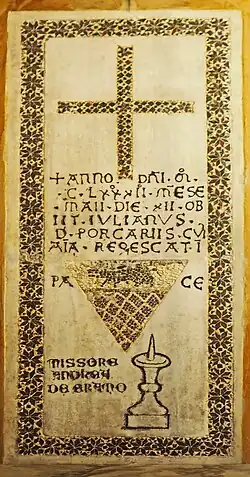 + ANNO · DNI · M ·
C · LXXXII · MESE
MAII · DIE · XII · OB
IIT · IULIANUS ·
D · PORCARIIS · CU
AIA · REQESCAT I
PA CE
MISSORE
ANDREA
DE ERMO